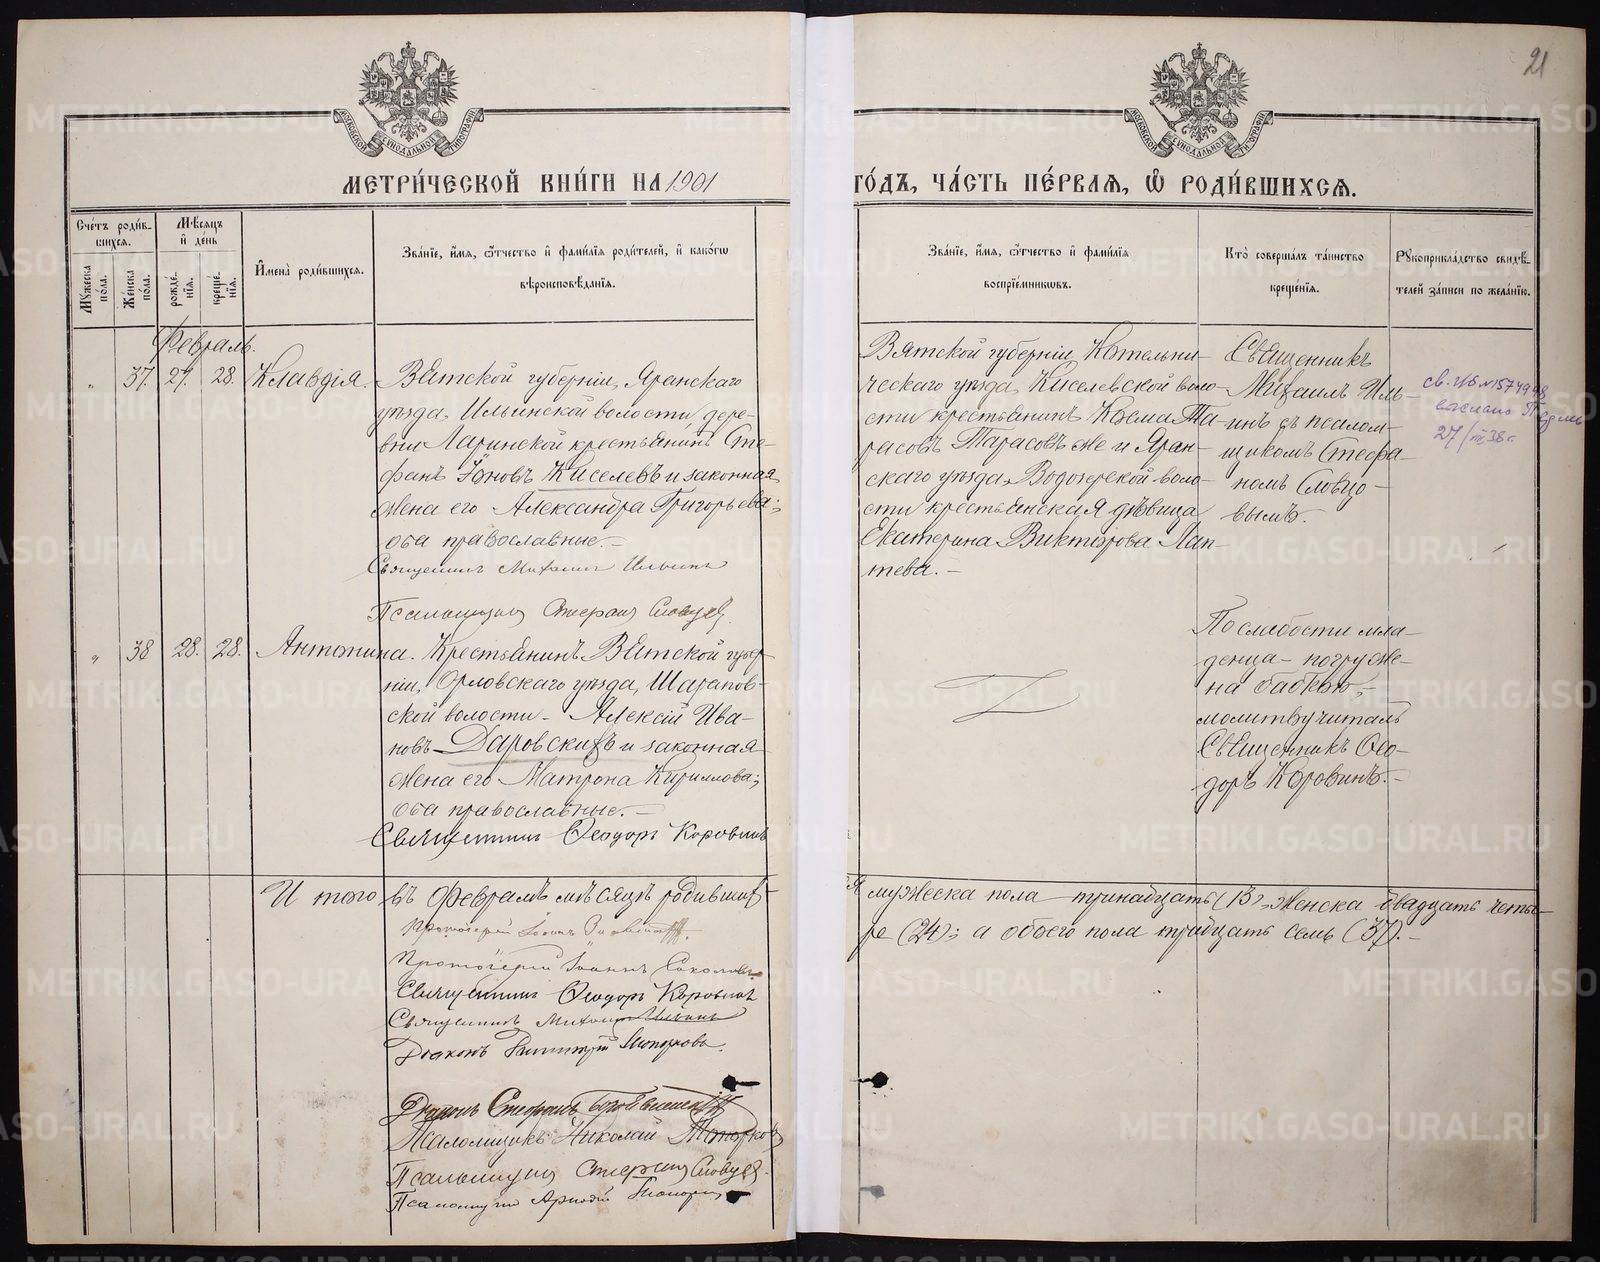 21
МОСКОВСКОЙ СѴНОДАЛЬНОЙ ТИПОГРАФІИ
МОСКОВСКОЙ СѴНОДАЛЬНОЙ ТИПОГРАФІИ
МЕТРИ́ЧЕСКОЙ КНИ́ГИ НА 1901
ГО́ДЪ, ЧА́СТЬ ПЕ́РВАЯ, Ѡ҆ РОДИ́ВШИХСЯ.
Сче́тъ роди́в-
шихся.
Мѣ́сяцъ
и҆ де́нь
Мꙋ́жеска по́ла.
Же́нска по́ла.
рожде́-
нїя.
креще́-
нїя.
И҆мена̀ роди́вшихся.
Зва́нїе, и҆́мя, ѻ҆́тчество и҆ фами́лїя роди́телей, и҆ како́гѡ
вѣроисповѣ́данїя.
Зва́нїе, и҆́мя, ѻ҆́тчество и҆ фами́лїя
воспрїе́мникѡвъ.
Кто̀ соверша́лъ та́инство
креще́нїя.
Рꙋкоприкла́дство свидѣ́-
телей за́писи по жела́нїю.
Февраль.
„ 37. 27. 28. Клавдія.
Вятской губерніи, Яранскаго
уѣзда, Ильинской волости, дере-
вни Ларинской крестьянинъ Сте-
фанъ Іоновъ Киселевъ и законная
жена его Александра Григорьева;
оба православные.-
Священникъ Михаилъ Ильинъ
Псаломщикъ Стефанъ Словцовъ.
Вятской губерніи, Котельни-
ческаго уѣзда, Киселевской воло-
сти крестьянинъ Косма Та-
расовъ Тарасовъ же и Яран-
скаго уѣзда, Водозерской воло-
сти крестьянская дѣвица
Екатерина Викторова Лап-
тева.-
Священникъ
Михаилъ Иль-
инъ съ псалом-
щикомъ Стефа-
номъ Словцо-
вымъ.
27/III 38 г.
„ 38 28. 28. Антонина.
Крестьянинъ Вятской губер-
ніи, Орловскаго уѣзда, Шараповской
ской волости- Алексій Ива-
новъ Даровскихъ и законная
жена его Матрона Кириллова;
оба православные.-
Священникъ Ѳеодоръ Коровинъ
По слабости мла-
денца- погруже-
на бабкою,-
молитву читалъ
Священникъ Ѳео-
доръ Коровинъ.-
Итого въ Февралѣ мѣсяцѣ родивших-
ся мужеска пола- тринадцать (13), женска- двадцать четы-
ре (24); а обоего пола тридцать семь (37).-
Протоіерей Іоаннъ
Протоіерей Іоаннъ Соколовъ
Священникъ Ѳеодоръ Коровинъ
Священникъ Михаилъ Ильинъ
Діаконъ Димитрій Топорковъ.
Діаконъ Стефанъ Богоявленскій
Псаломщикъ Николай Топорковъ
Псаломщикъ Стефанъ Словцовъ.
Псаломщикъ
METRIKI.GASO-URAL.RU